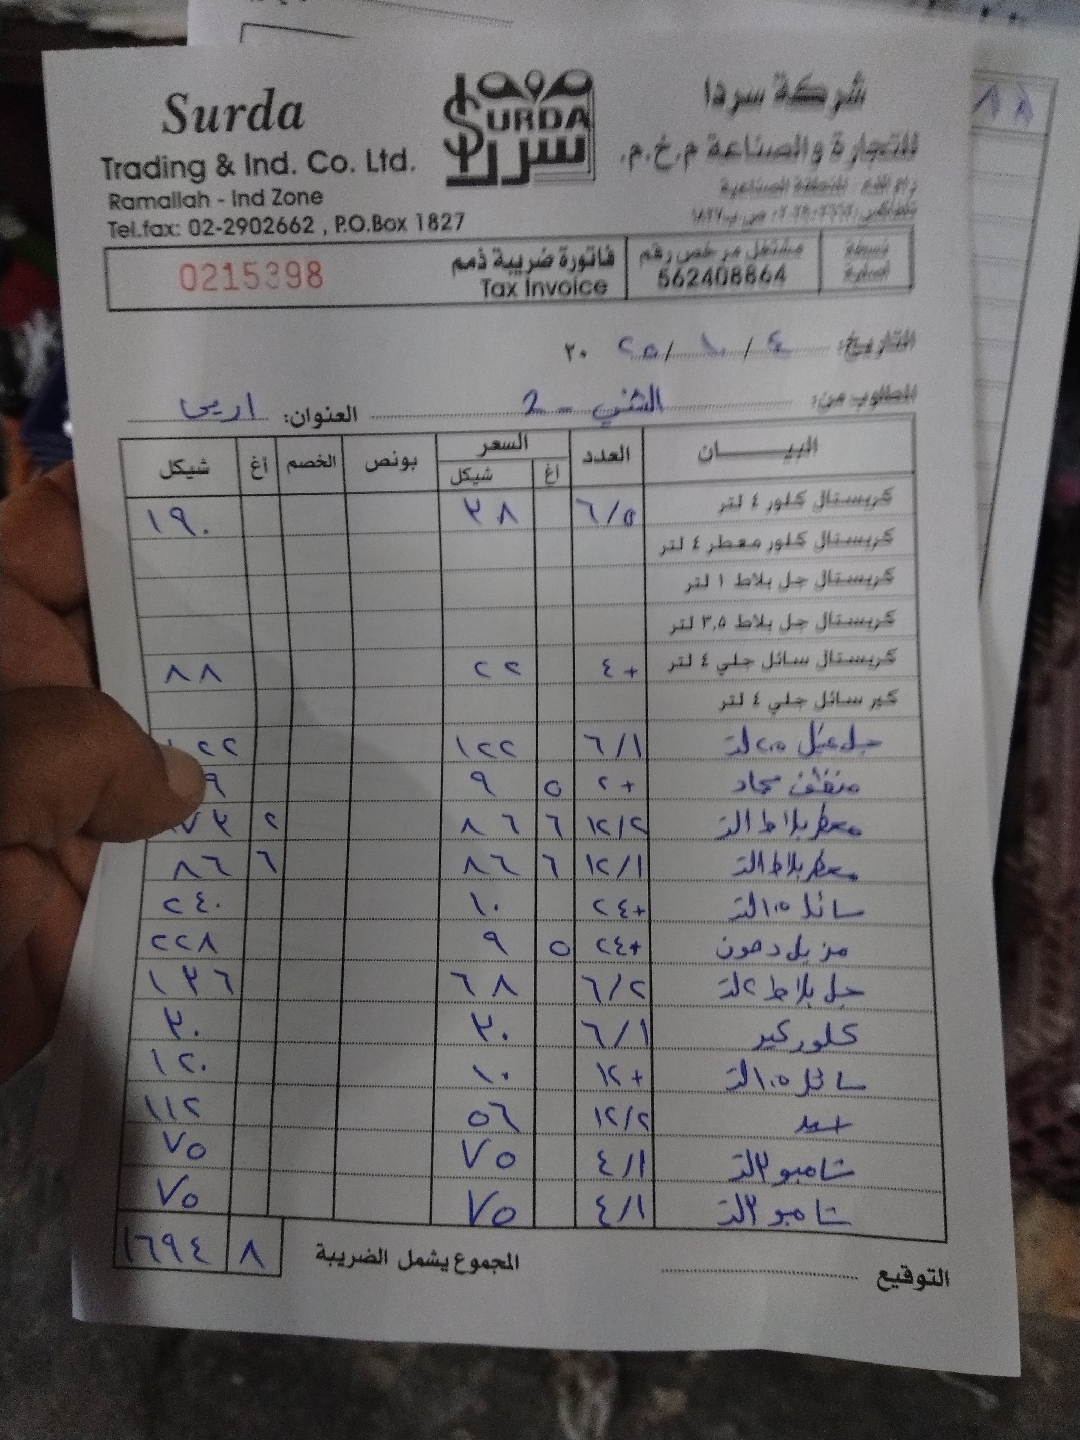 Surda
Trading & Ind. Co. Ltd.
Ramallah - Ind Zone
Tel.fax: 02-2902662 , P.O.Box 1827
SURDA
سردا
شركة سردا
للتجارة والصناعة م.خ.م.
رام الله المنطقة الصناعية
0215398
فاتورة ضريبة ذمم
Tax Invoice
مشتغل مرخص رقم
562408864
التاريخ: ٤ / ١٠ / ٢٥ ٢٠
المطلوب من: الشني - 2 العنوان: اريحا
البيــــــان العدد السعر بونص الخصم أغ شيكل
أغ شيكل
كريستال كلور ٤ لتر ٦/٥ ٣٨ ١٩٠
كريستال كلور معطر ٤ لتر
كريستال جل بلاط ١ لتر
كريستال جل بلاط ٣,٥ لتر
كريستال سائل جلي ٤ لتر +٤ ٢٢ ٨٨
كير سائل جلي ٤ لتر
جل غسيل ٢,٥ لتر ٦/١ ١٢٢ ١٢٢
منظف سجاد +٢ ٥ ٩ ٩
معطر بلاط التر ١٢/٢ ٦ ٨٦ ٧٣ ٢
معطر بلاط التر ١٢/١ ٦ ٨٦ ٦ ٨٦
سائل ١,٥ لتر +٢٤ ١٠ ٢٤٠
مزيل دهون +٢٤ ٥ ٩ ٢٢٨
جل بلاط ٢ لتر ٦/٢ ٦٨ ١٣٦
كلور كير ٦/١ ٣٠ ٣٠
سائل ١,٥ لتر +١٢ ١٠ ١٢٠
١٢/٢ ٥٦ ١١٢
شامبو ٣ لتر ٤/١ ٧٥ ٧٥
شامبو ٣ لتر ٤/١ ٧٥ ٧٥
التوقيع المجموع يشمل الضريبة ٨ ١٦٩٤